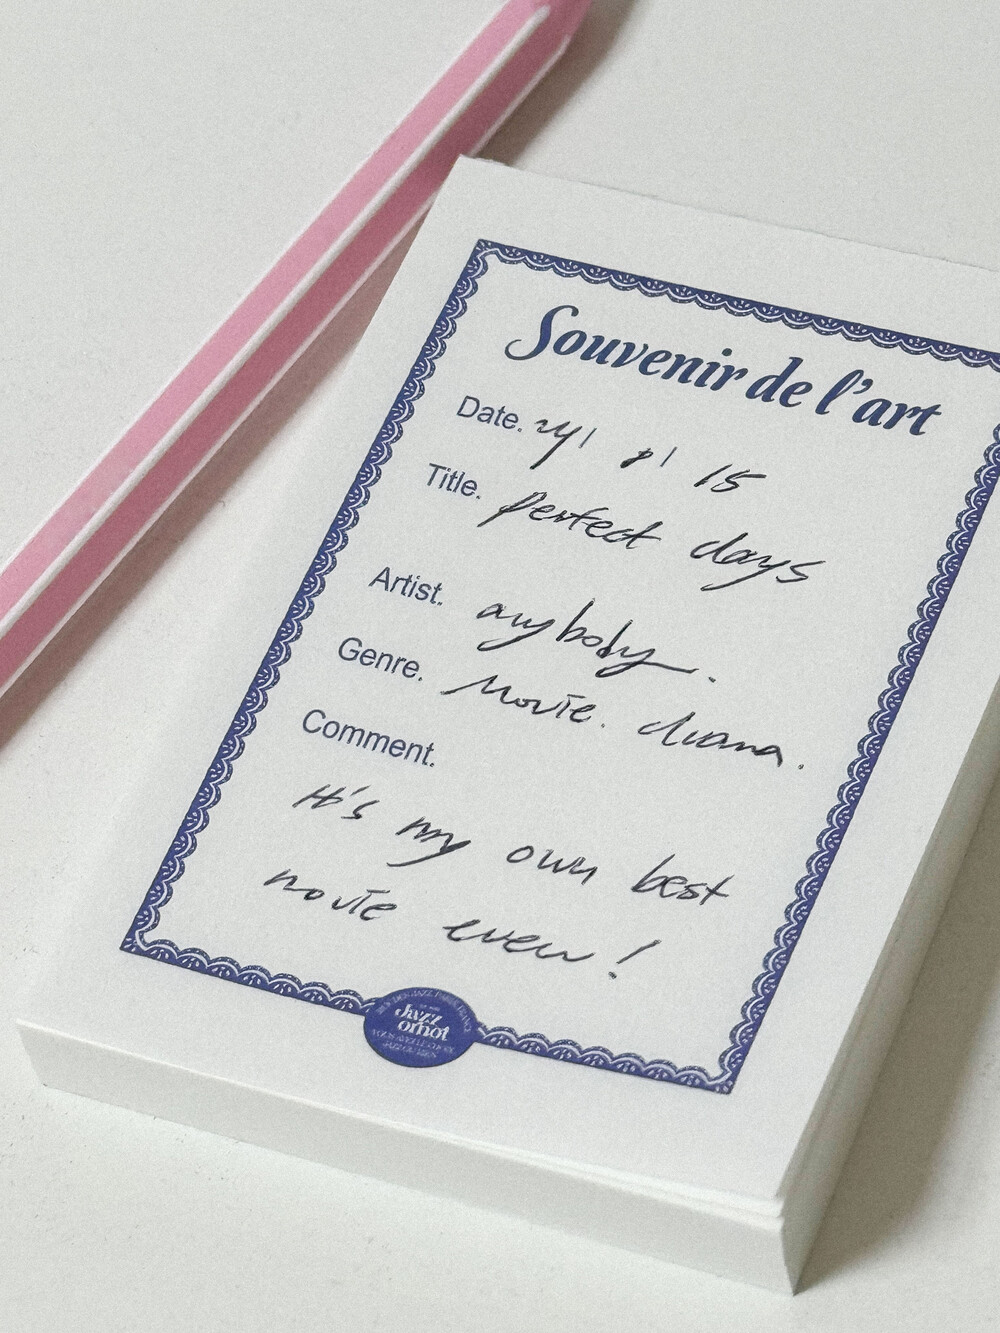 Souvenir de l'art
Date. 24 | 8 | 15
Title. perfect days
Artist. anybody.
Genre. Movie. drama.
Comment.
It's my own best
movie ever!
Jazz
ornot